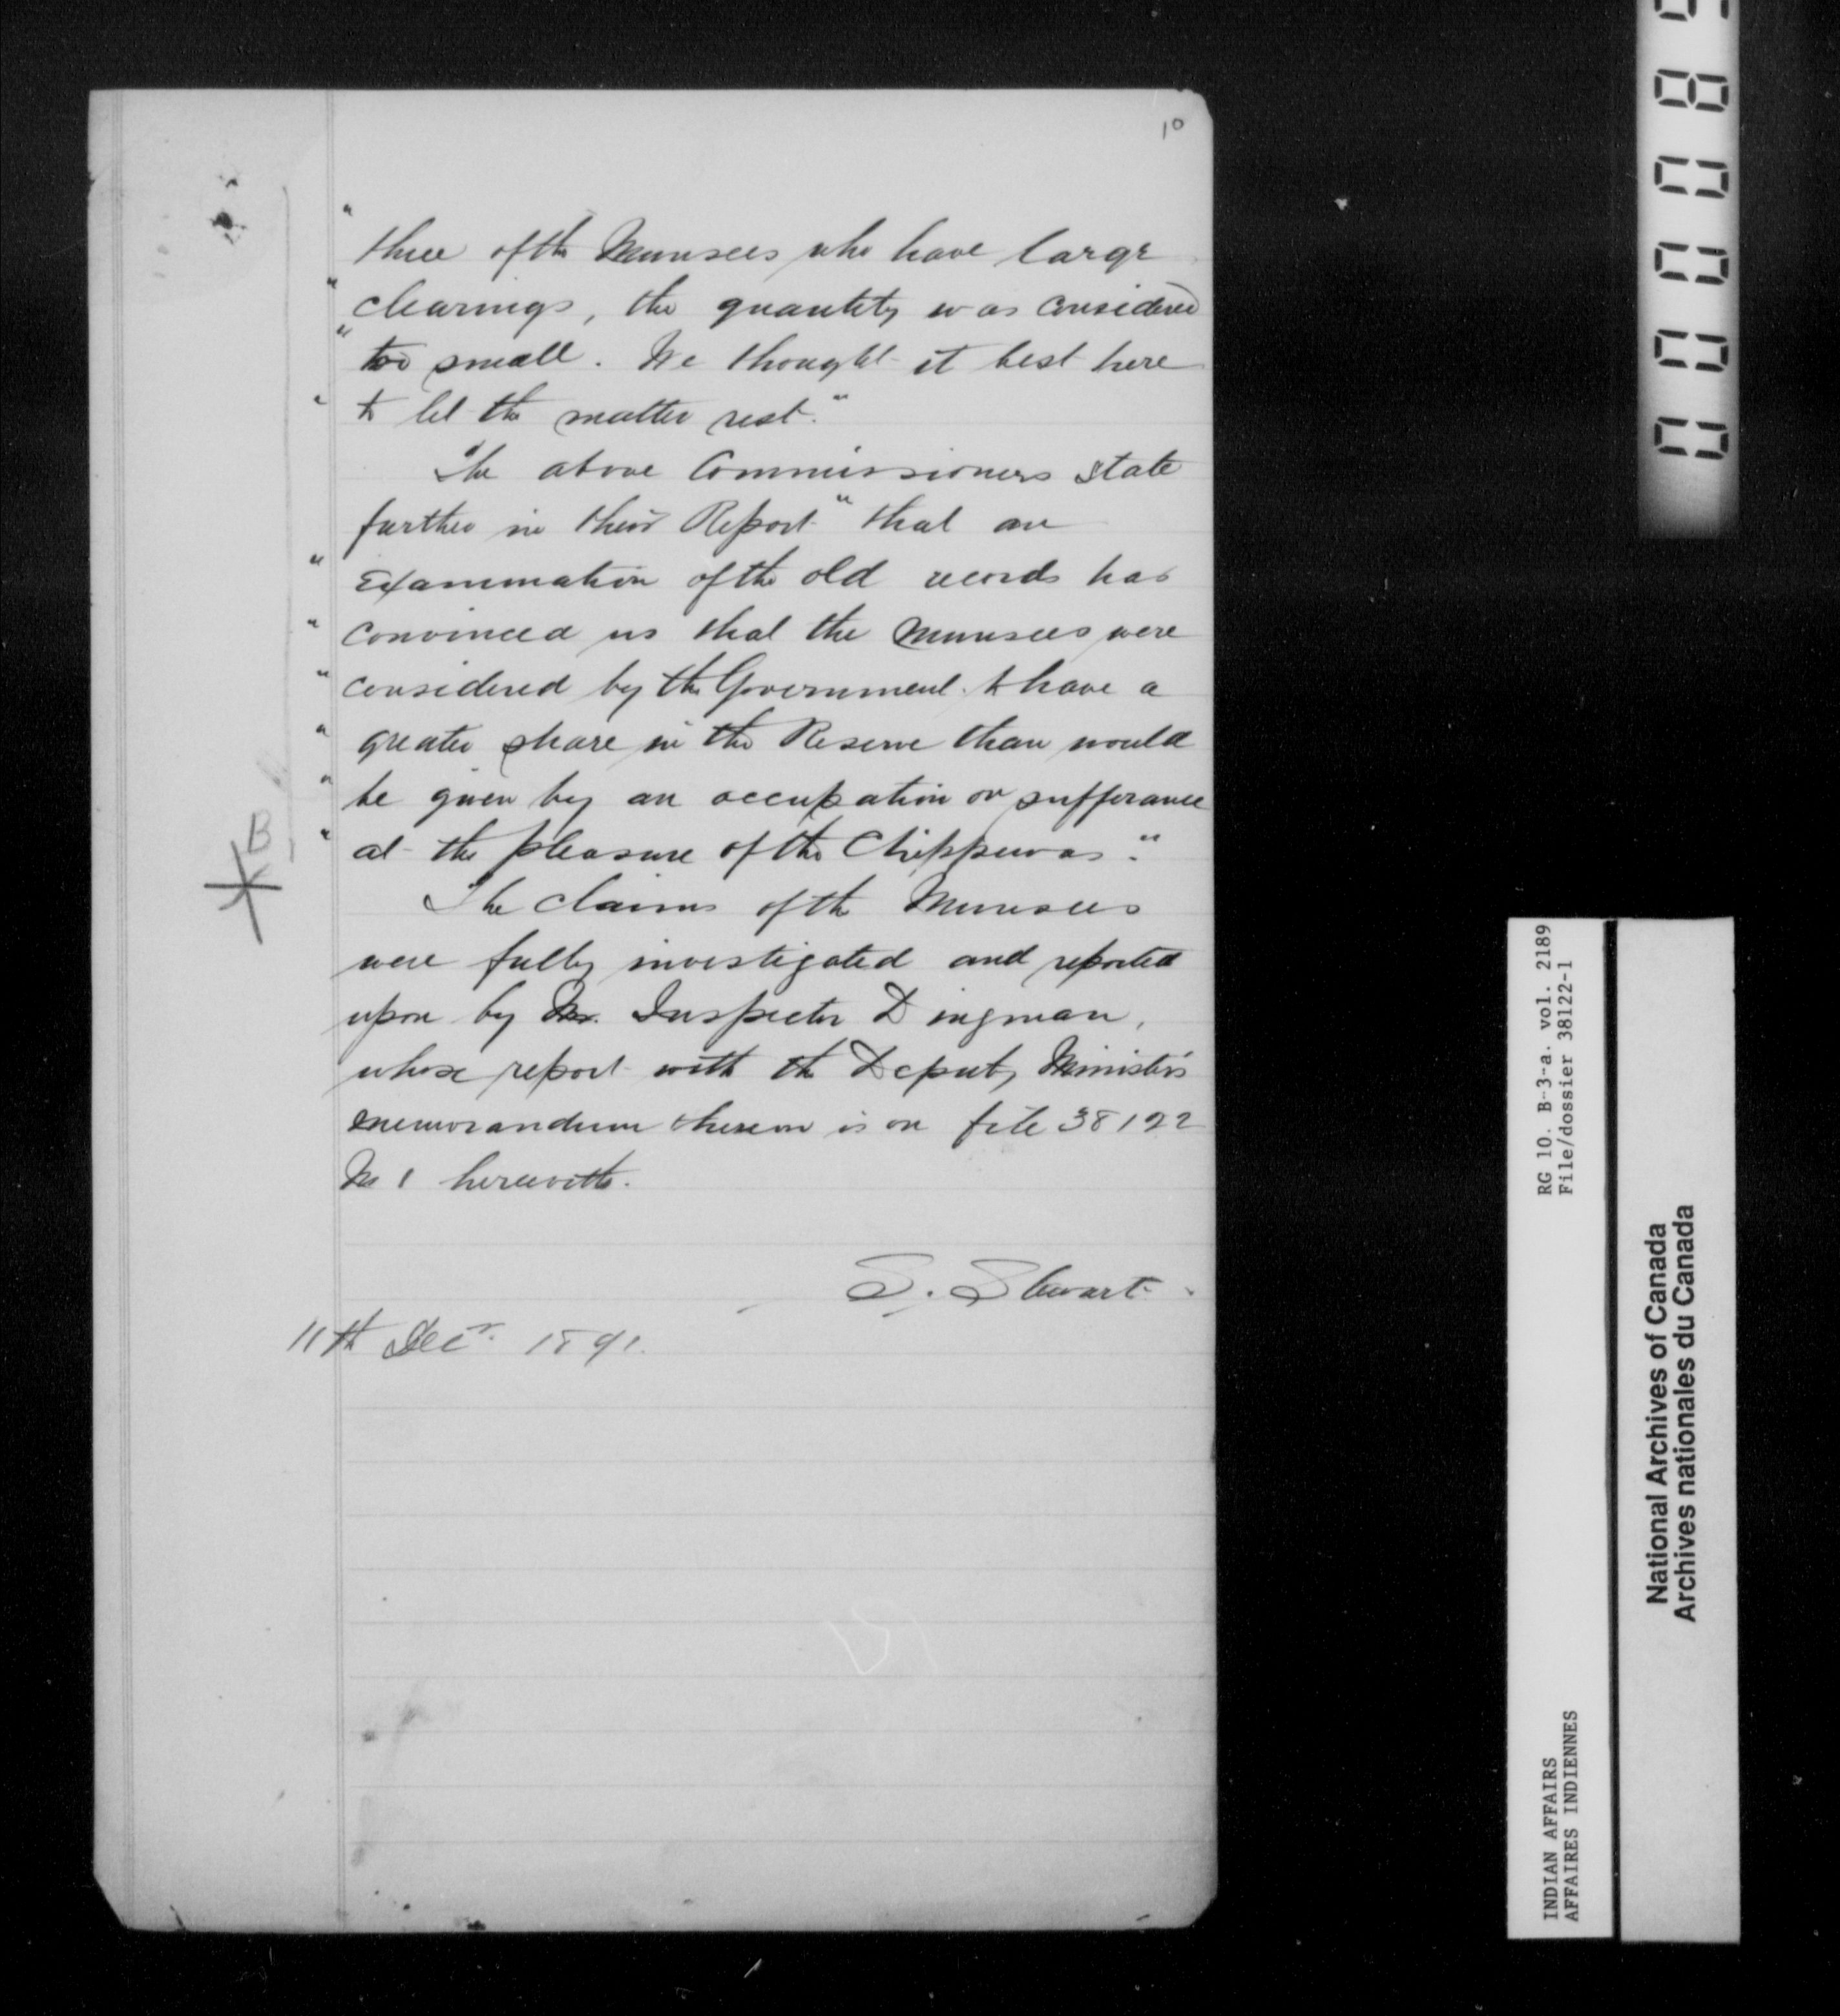 10
" three of the Munsees who have large
" clearings, the quantity was considered
" too small. We thought it best here
" to let the matter rest."
The above Commissioners state
further in their Report "that an
" Examination of the old records has
" convinced us that the Munsees were
" considered by the Government to have a
" greater share in the Reserve than would
" be given by an occupation on sufferance
" at the pleasure of the Chippewas."
B
The claims of the Munsees
were fully investigated and reported
upon by Mr. Inspector Dingman,
whose report with the Deputy Minister's
memorandum thereon is on file 38122
No 1 herewith.
S. Stewart.
11th Decr. 1891.
RG 10. B-3-a. vol. 2189
File/dossier 38122-1
INDIAN AFFAIRS
AFFAIRES INDIENNES
National Archives of Canada
Archives nationales du Canada